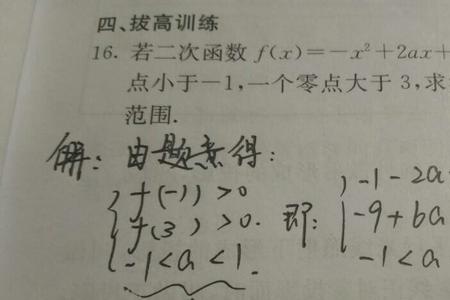 四、拔高训练
16. 若二次函数 f(x)=-x²+2ax+
点小于-1,一个零点大于 3,求
范围.
解: 由题意得:
f(-1)>0
f(3)>0. 即:
-1<a<1.
-1-2a
-9+6a
-1<a